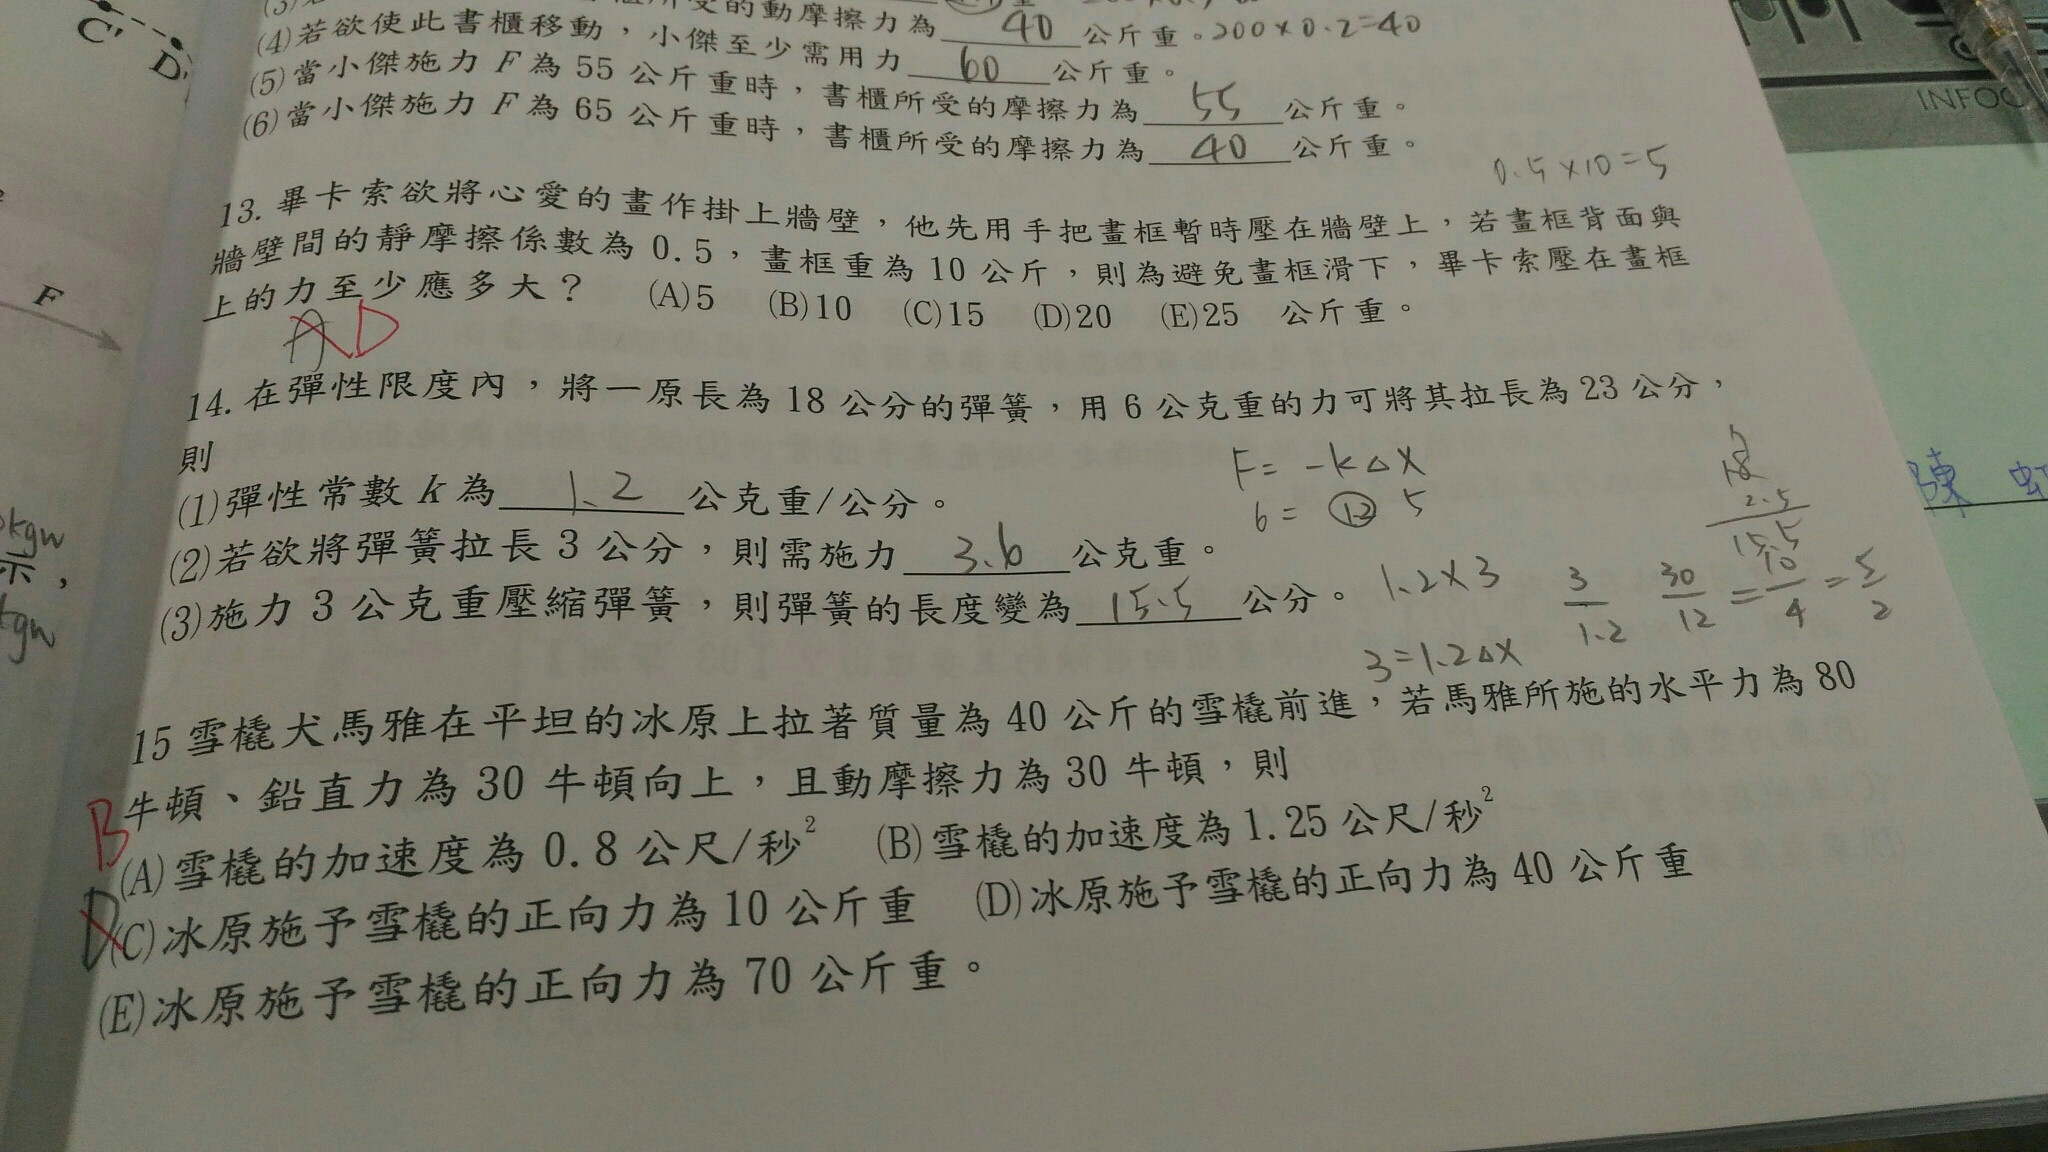 C'
D
F
所受的動摩擦力為 40 公斤重。200×0.2=40
(4)若欲使此書櫃移動,小傑至少需用力 60 公斤重。
(5)當小傑施力 F 為 55 公斤重時,書櫃所受的摩擦力為 55 公斤重。
(6)當小傑施力 F 為 65 公斤重時,書櫃所受的摩擦力為 40 公斤重。
0.5×10=5
13. 畢卡索欲將心愛的畫作掛上牆壁,他先用手把畫框暫時壓在牆壁上,若畫框背面與
牆壁間的靜摩擦係數為 0.5,畫框重為 10 公斤,則為避免畫框滑下,畢卡索壓在畫框
上的力至少應多大? (A)5 (B)10 (C)15 (D)20 (E)25 公斤重。
A D
14. 在彈性限度內,將一原長為 18 公分的彈簧,用 6 公克重的力可將其拉長為 23 公分,
則
(1)彈性常數 k 為 1.2 公克重/公分。
F = -k△X
6 = 1.2 5
(2)若欲將彈簧拉長 3 公分,則需施力 3.6 公克重。
(3)施力 3 公克重壓縮彈簧,則彈簧的長度變為 15.5 公分。
1.2×3
3/1.2 30/12 = 10/4 = 5/2
18
2.5
15.5
3=1.2△X
kgw
示,
kgw
15 雪橇犬馬雅在平坦的冰原上拉著質量為 40 公斤的雪橇前進,若馬雅所施的水平力為 80
牛頓、鉛直力為 30 牛頓向上,且動摩擦力為 30 牛頓,則
B
(A)雪橇的加速度為 0.8 公尺/秒² (B)雪橇的加速度為 1.25 公尺/秒²
D
(C)冰原施予雪橇的正向力為 10 公斤重 (D)冰原施予雪橇的正向力為 40 公斤重
(E)冰原施予雪橇的正向力為 70 公斤重。
INFOC
陳